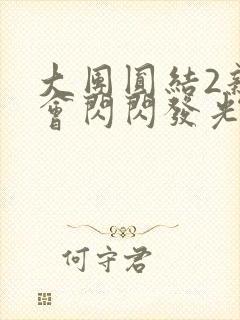 大團圓結2
會閃閃發光
何守君